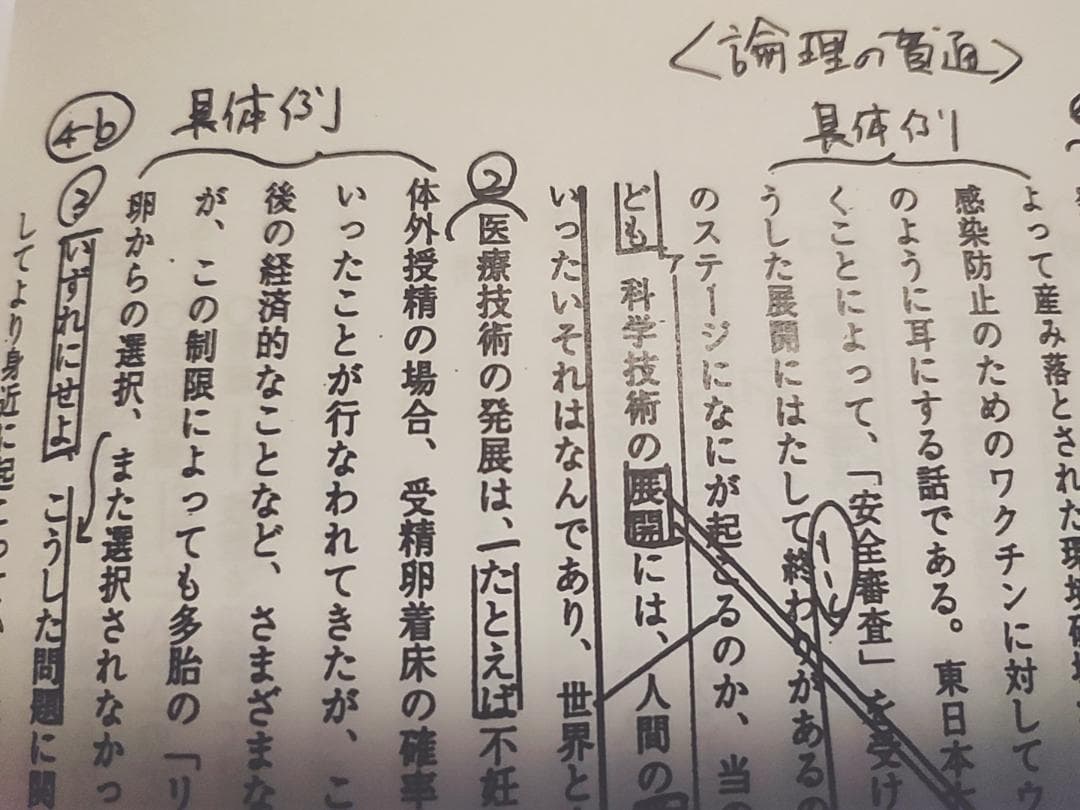 <論理の貫通>
具体例
よって産み落とされた環境
感染防止のためのワクチンに対して
のように耳にする話である。東日本
くことによって、「安全審査」を受け
うした展開にはたして終わりがあるの
のステージになにが起こるのか、当
ども 科学技術の展開には、人間の
いったいそれはなんであり、世界と
②
医療技術の発展は、たとえば不妊
具体例
体外授精の場合、受精卵着床の確率
いったことが行なわれてきたが、こ
後の経済的なことなど、さまざまな
が、この制限によっても多胎の「リ
卵からの選択、また選択されなかっ
4-b
③
いずれにせよ、こうした問題に関
してより身近に起こってい